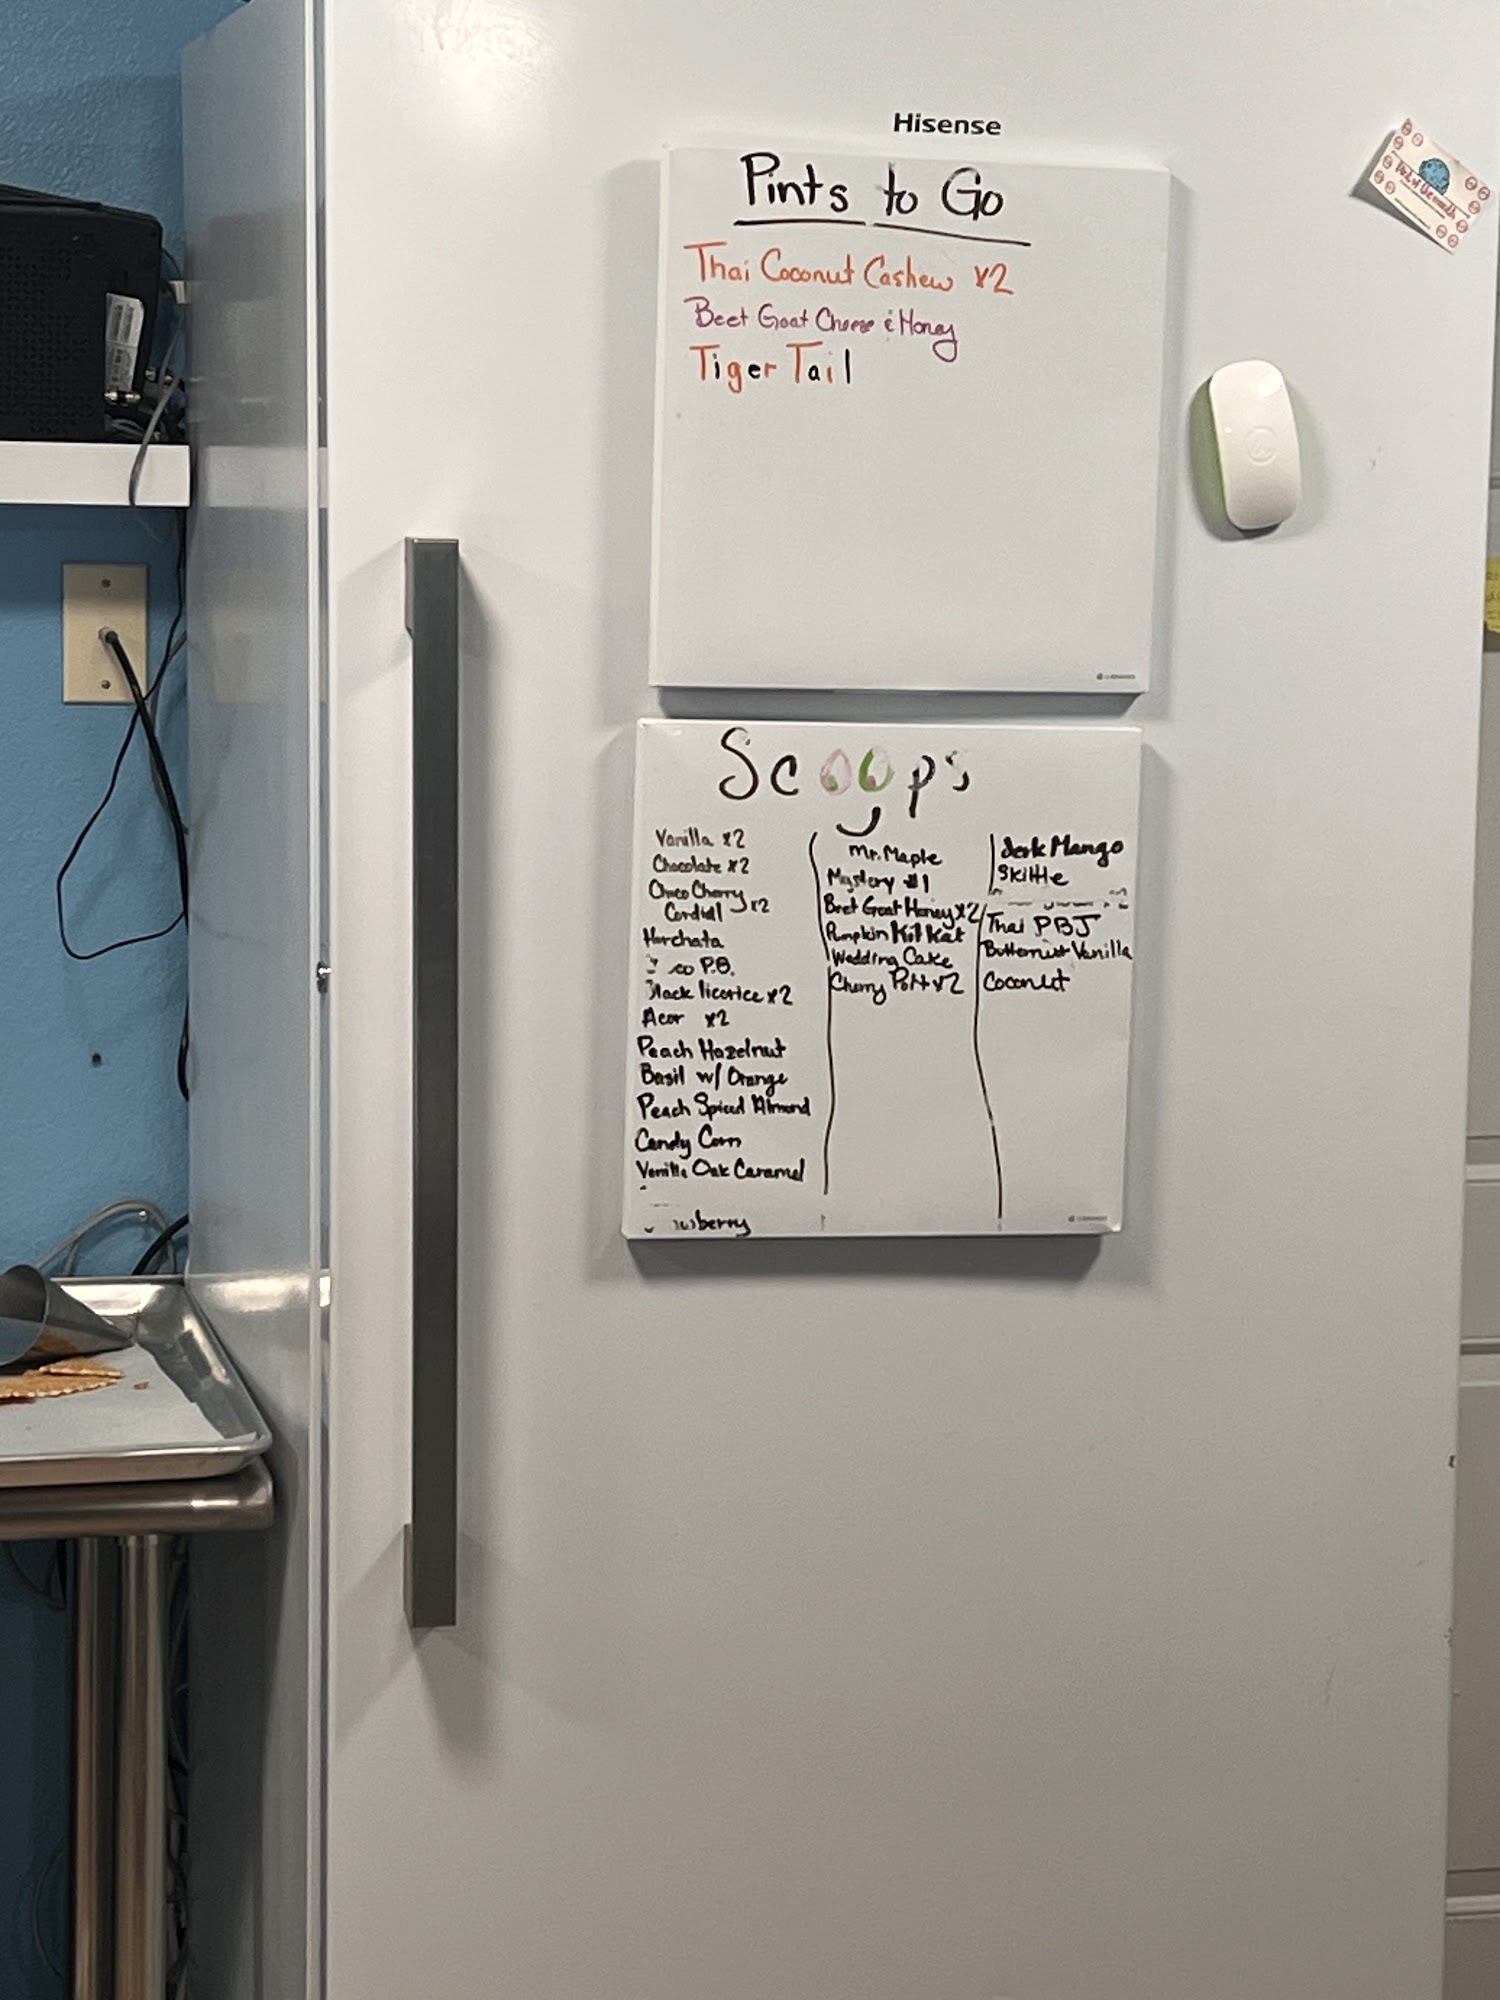 Hisense
Pints to Go
Thai Coconut Cashew x2
Beet Goat Cheese & Honey
Tiger Tail
Scoops
Vanilla x2
Chocolate x2
Choco Cherry
Cordial x2
Horchata
P.B.
licorice x2
x2
Peach Hazelnut
Basil w/ Orange
Peach Spiced Almond
Candy Corn
Vanilla Oak Caramel
Mr. Maple
Mystery #1
Beet Goat Honey x2
Pumpkin Kit Kat
Wedding Cake
Cherry Port x2
Jerk Mango
Skittle
Thai PBJ
Butternut Vanilla
Coconut